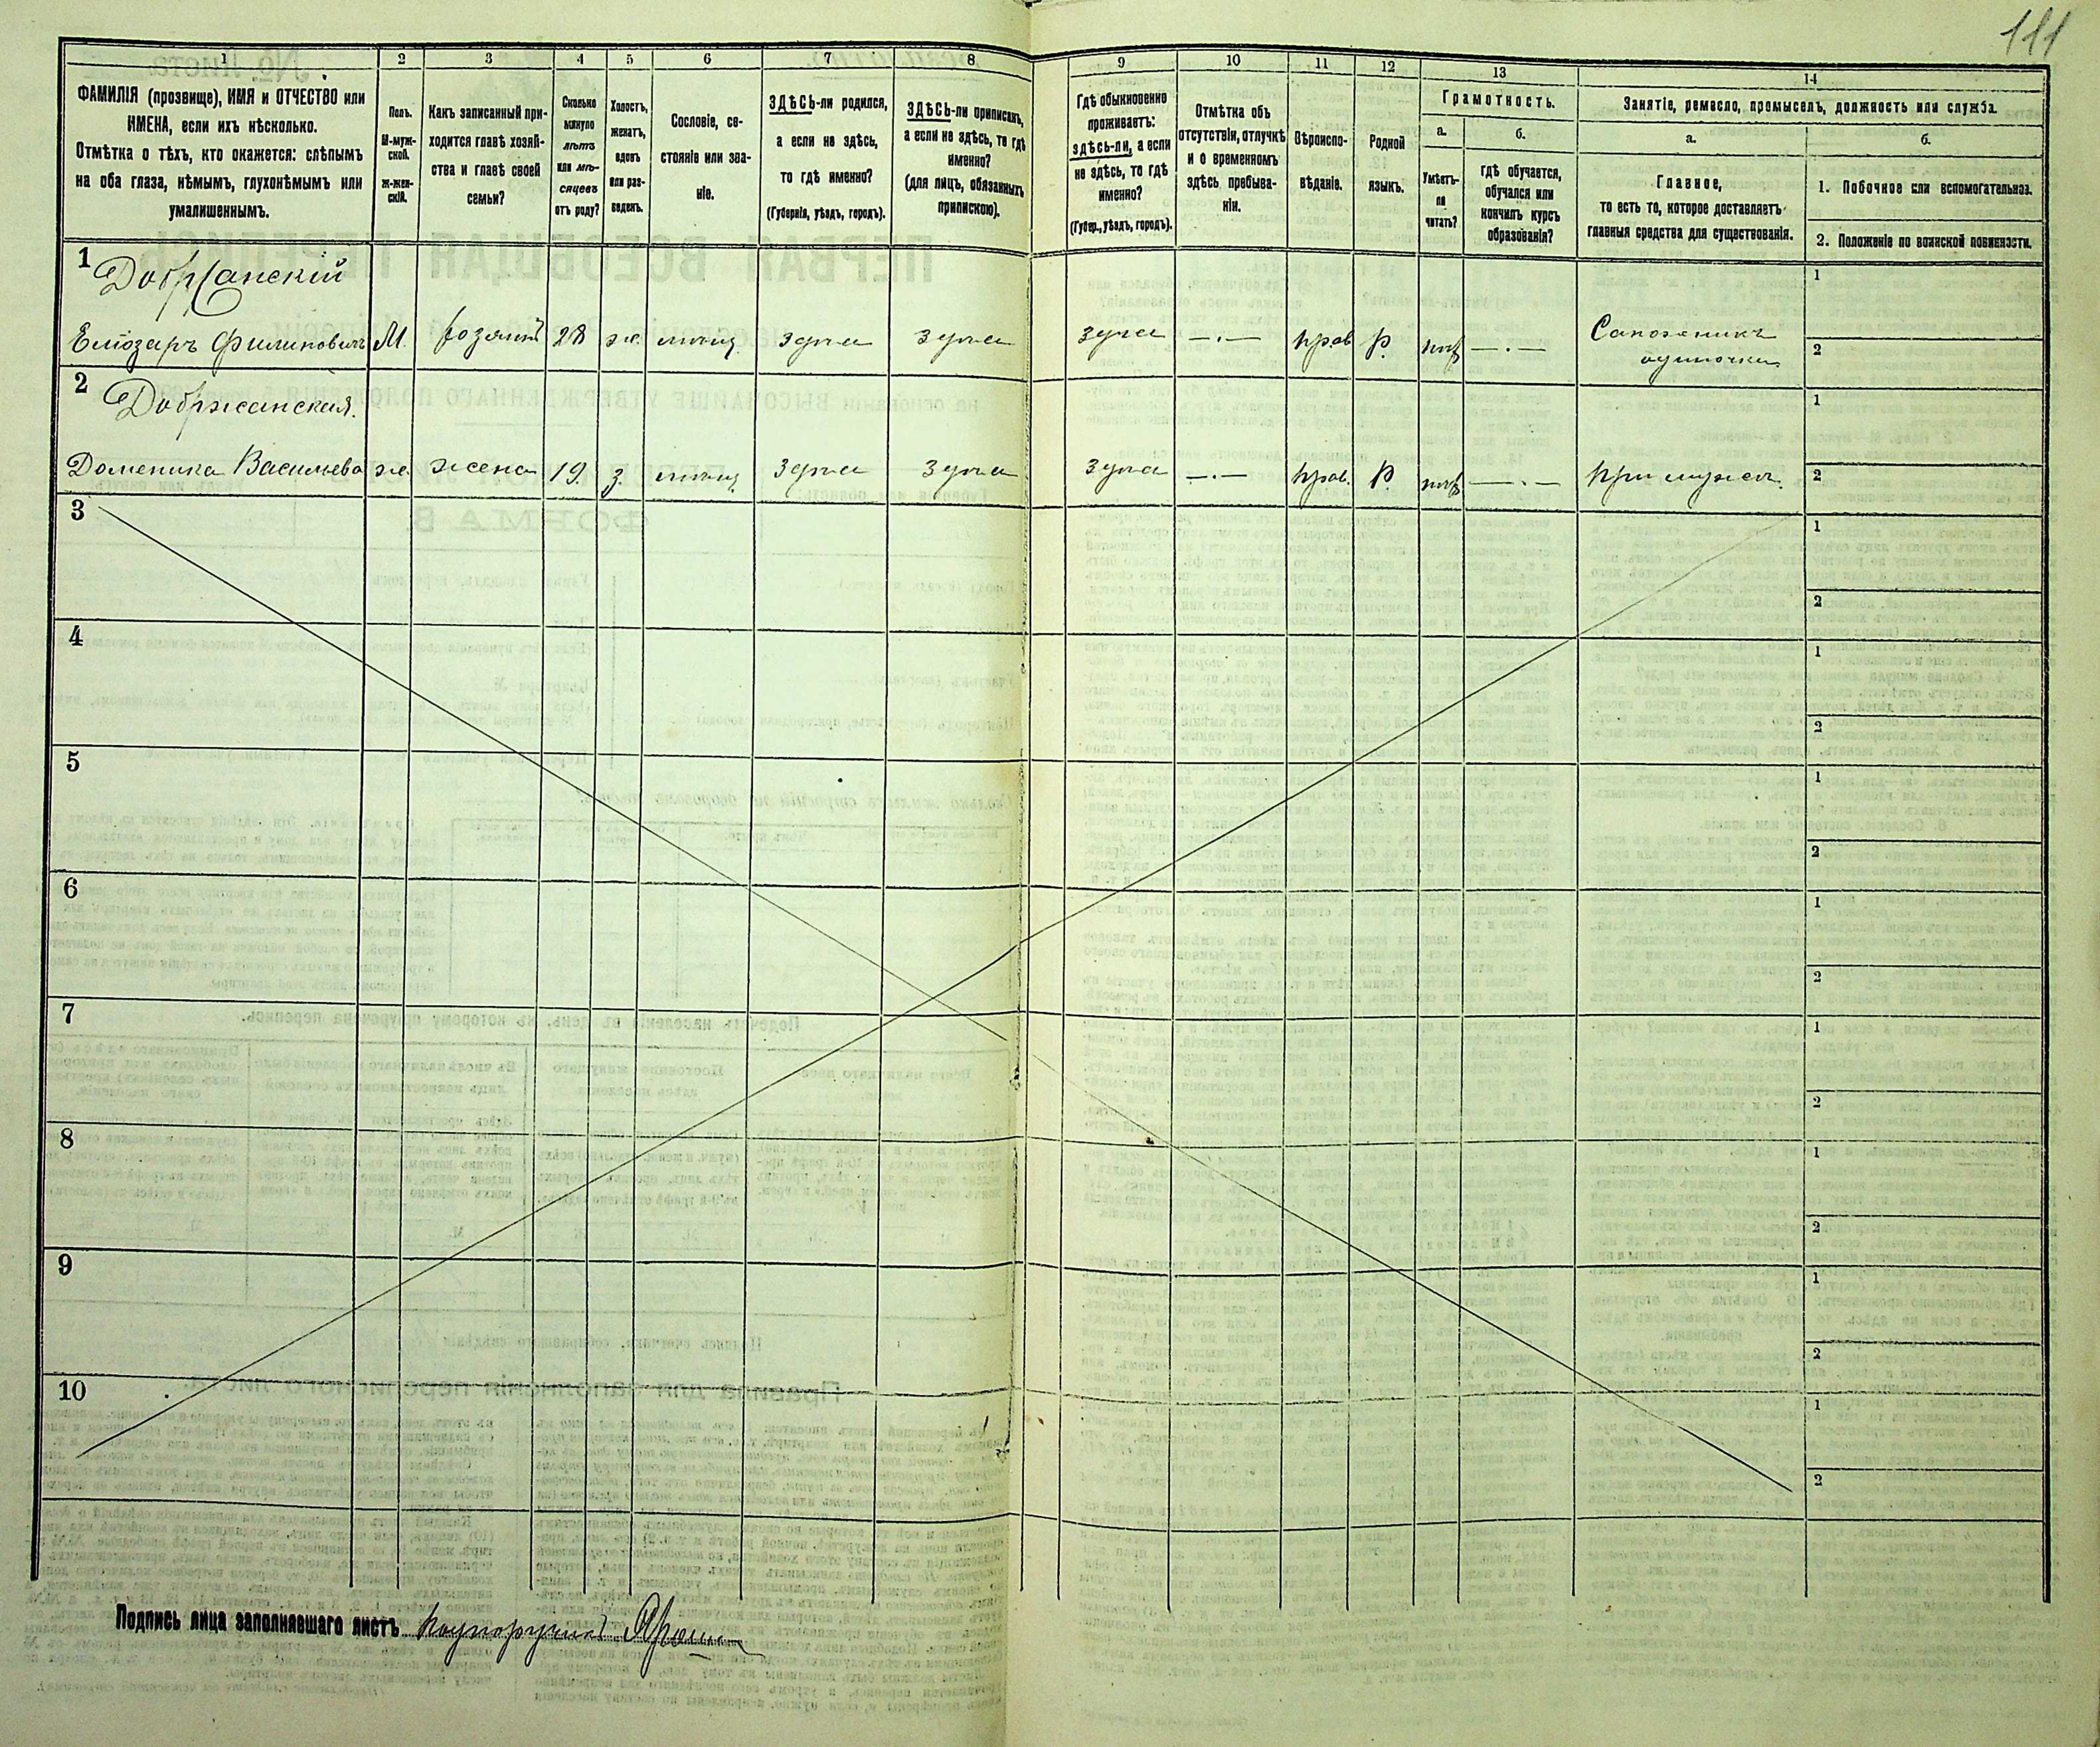 111
1 2 3 4 5 6 7 8 9 10 11 12 13 14
ФАМИЛІЯ (прозвище), ИМЯ и ОТЧЕСТВО или
ИМЕНА, если ихъ нѣсколько.
Отмѣтка о тѣхъ, кто окажется: слѣпымъ
на оба глаза, нѣмымъ, глухонѣмымъ или
умалишеннымъ.
Полъ.
М-муж-
ской.
ж-жен-
скій.
Какъ записанный при-
ходится главѣ хозяй-
ства и главѣ своей
семьи?
Сколько
минуло
лѣтъ
или мѣ-
сяцевъ
отъ роду?
Холостъ,
женатъ,
вдовъ
или раз-
веденъ.
Сословіе, со-
стояніе или зва-
ніе.
ЗДѢСЬ-ли родился,
а если не здѣсь,
то гдѣ именно?
(Губернія, уѣздъ, городъ).
ЗДѢСЬ-ли приписанъ,
а если не здѣсь, то гдѣ
именно?
(для лицъ, обязанныхъ
припискою).
Гдѣ обыкновенно
проживаетъ:
здѣсь-ли, а если
не здѣсь, то гдѣ
именно?
(Губер., уѣздъ, городъ).
Отмѣтка объ
отсутствіи, отлучкѣ
и о временномъ
здѣсь пребыва-
ніи.
Вѣроиспо-
вѣданіе.
Родной
языкъ.
Грамотность.
а.
Умѣетъ-
ли
читать?
б.
гдѣ обучается,
обучался или
кончилъ курсъ
образованія?
Занятіе, ремесло, промыселъ, должность или служба.
а.
Главное,
то есть то, которое доставляетъ
главныя средства для существованія.
б.
1. Побочное или вспомогательное.
2. Положеніе по воинской повинности.
1 Добржанскій 1
Елиозаръ Филиповичъ М. хозяинъ 28 ж. мѣщ. здѣсь здѣсь здѣсь —.— прав. Р. нѣтъ —.— Сапожникъ 2
одиночка
2 Добржанская. 1
Доменика Васильева ж. жена 19. з. мѣщ. здѣсь здѣсь здѣсь —.— прав. Р. нѣтъ —.— при мужѣ. 2
3 1
2
4 1
2
5 1
2
6 1
2
7 1
2
8 1
2
9 1
2
10 1
2
Подпись лица заполнявшаго листъ